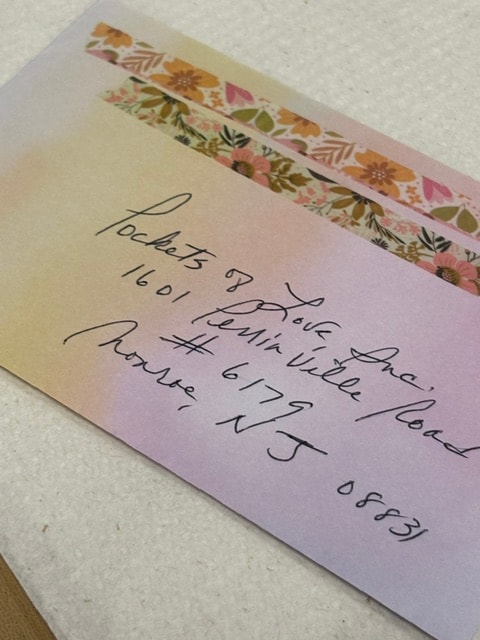 Pockets of Love, Inc.
1601 Perrinville Road
# 6179
Monroe, NJ 08831